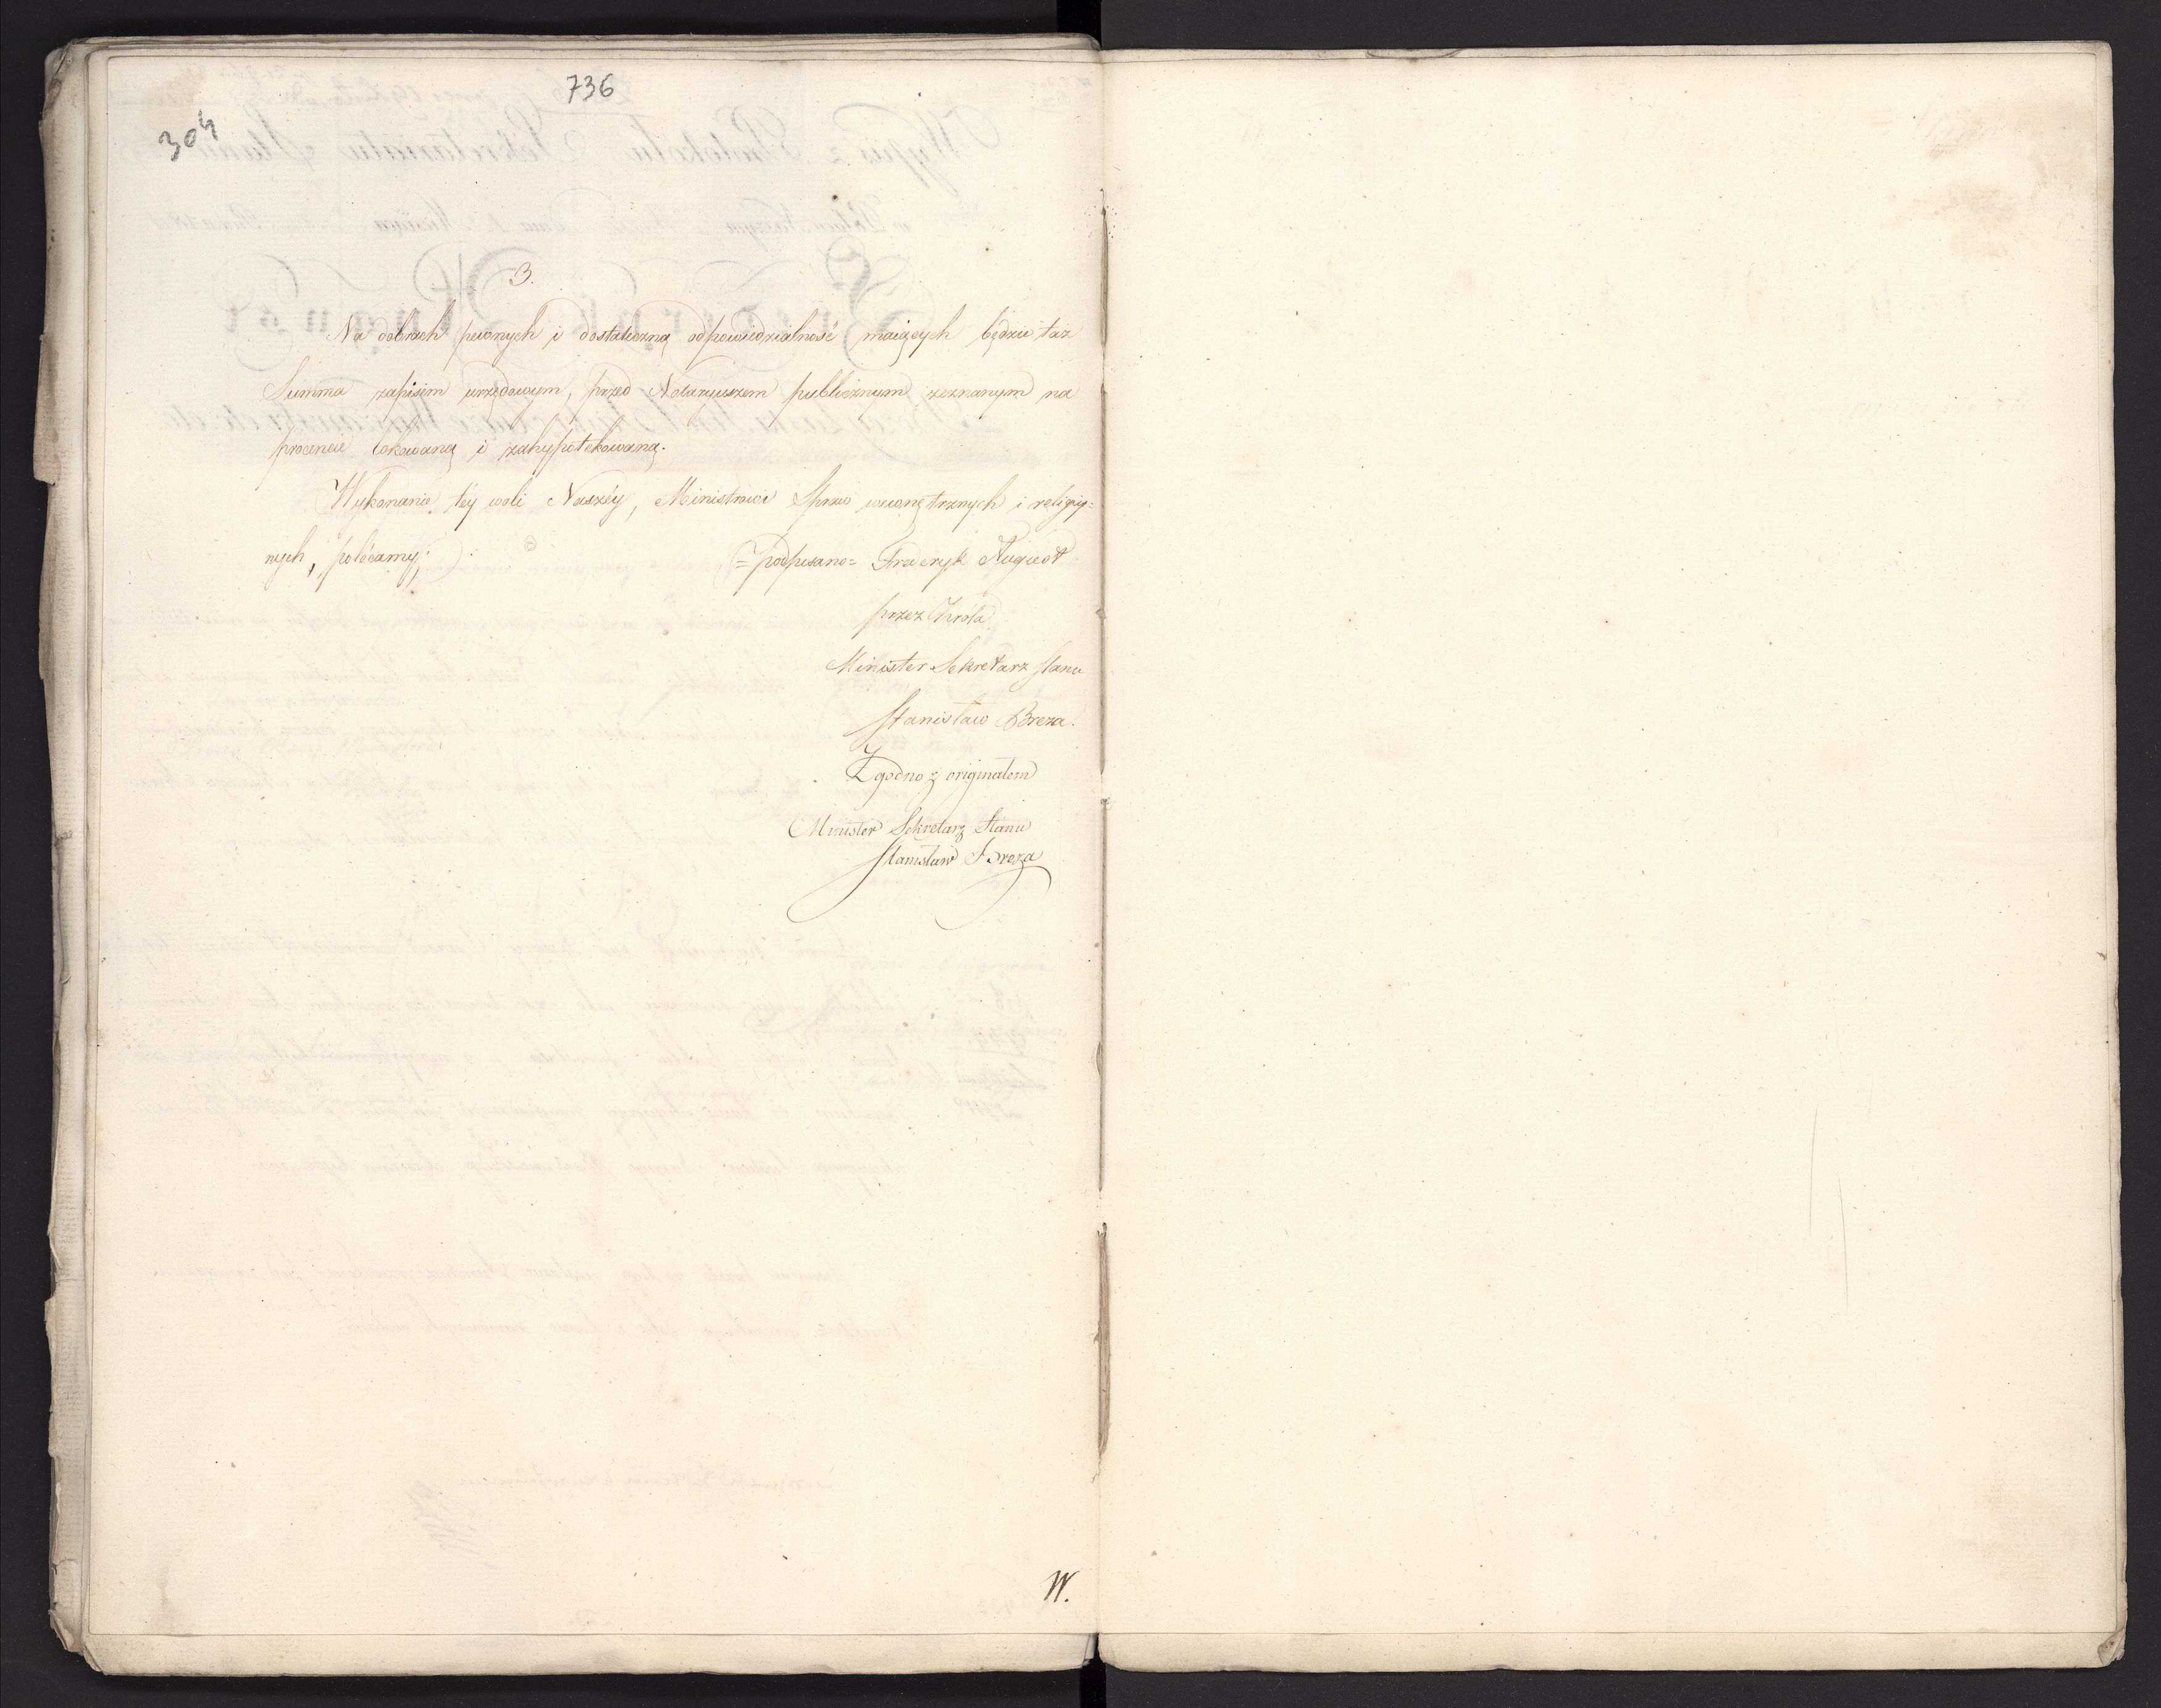 736
304
3.
Na dobrach pewnych i dostateczną odpowiedzialność maiących będzie taż
Summa zapisem urzędowym, przed Notaryuszem publicznym zeznanym na
procencie lokowaną i zahypotekowaną.
Wykonanie téy woli Naszéy, Ministrowi Spraw wewnętrznych i religiy=
nych, polécamy;
=podpisano= Frederyk August
przez Króla
Minister Sekretarz Stanu
Stanisław Breza.
Zgodno z originałem
Minister Sekretarz Stanu
Stanisław Breza
W.